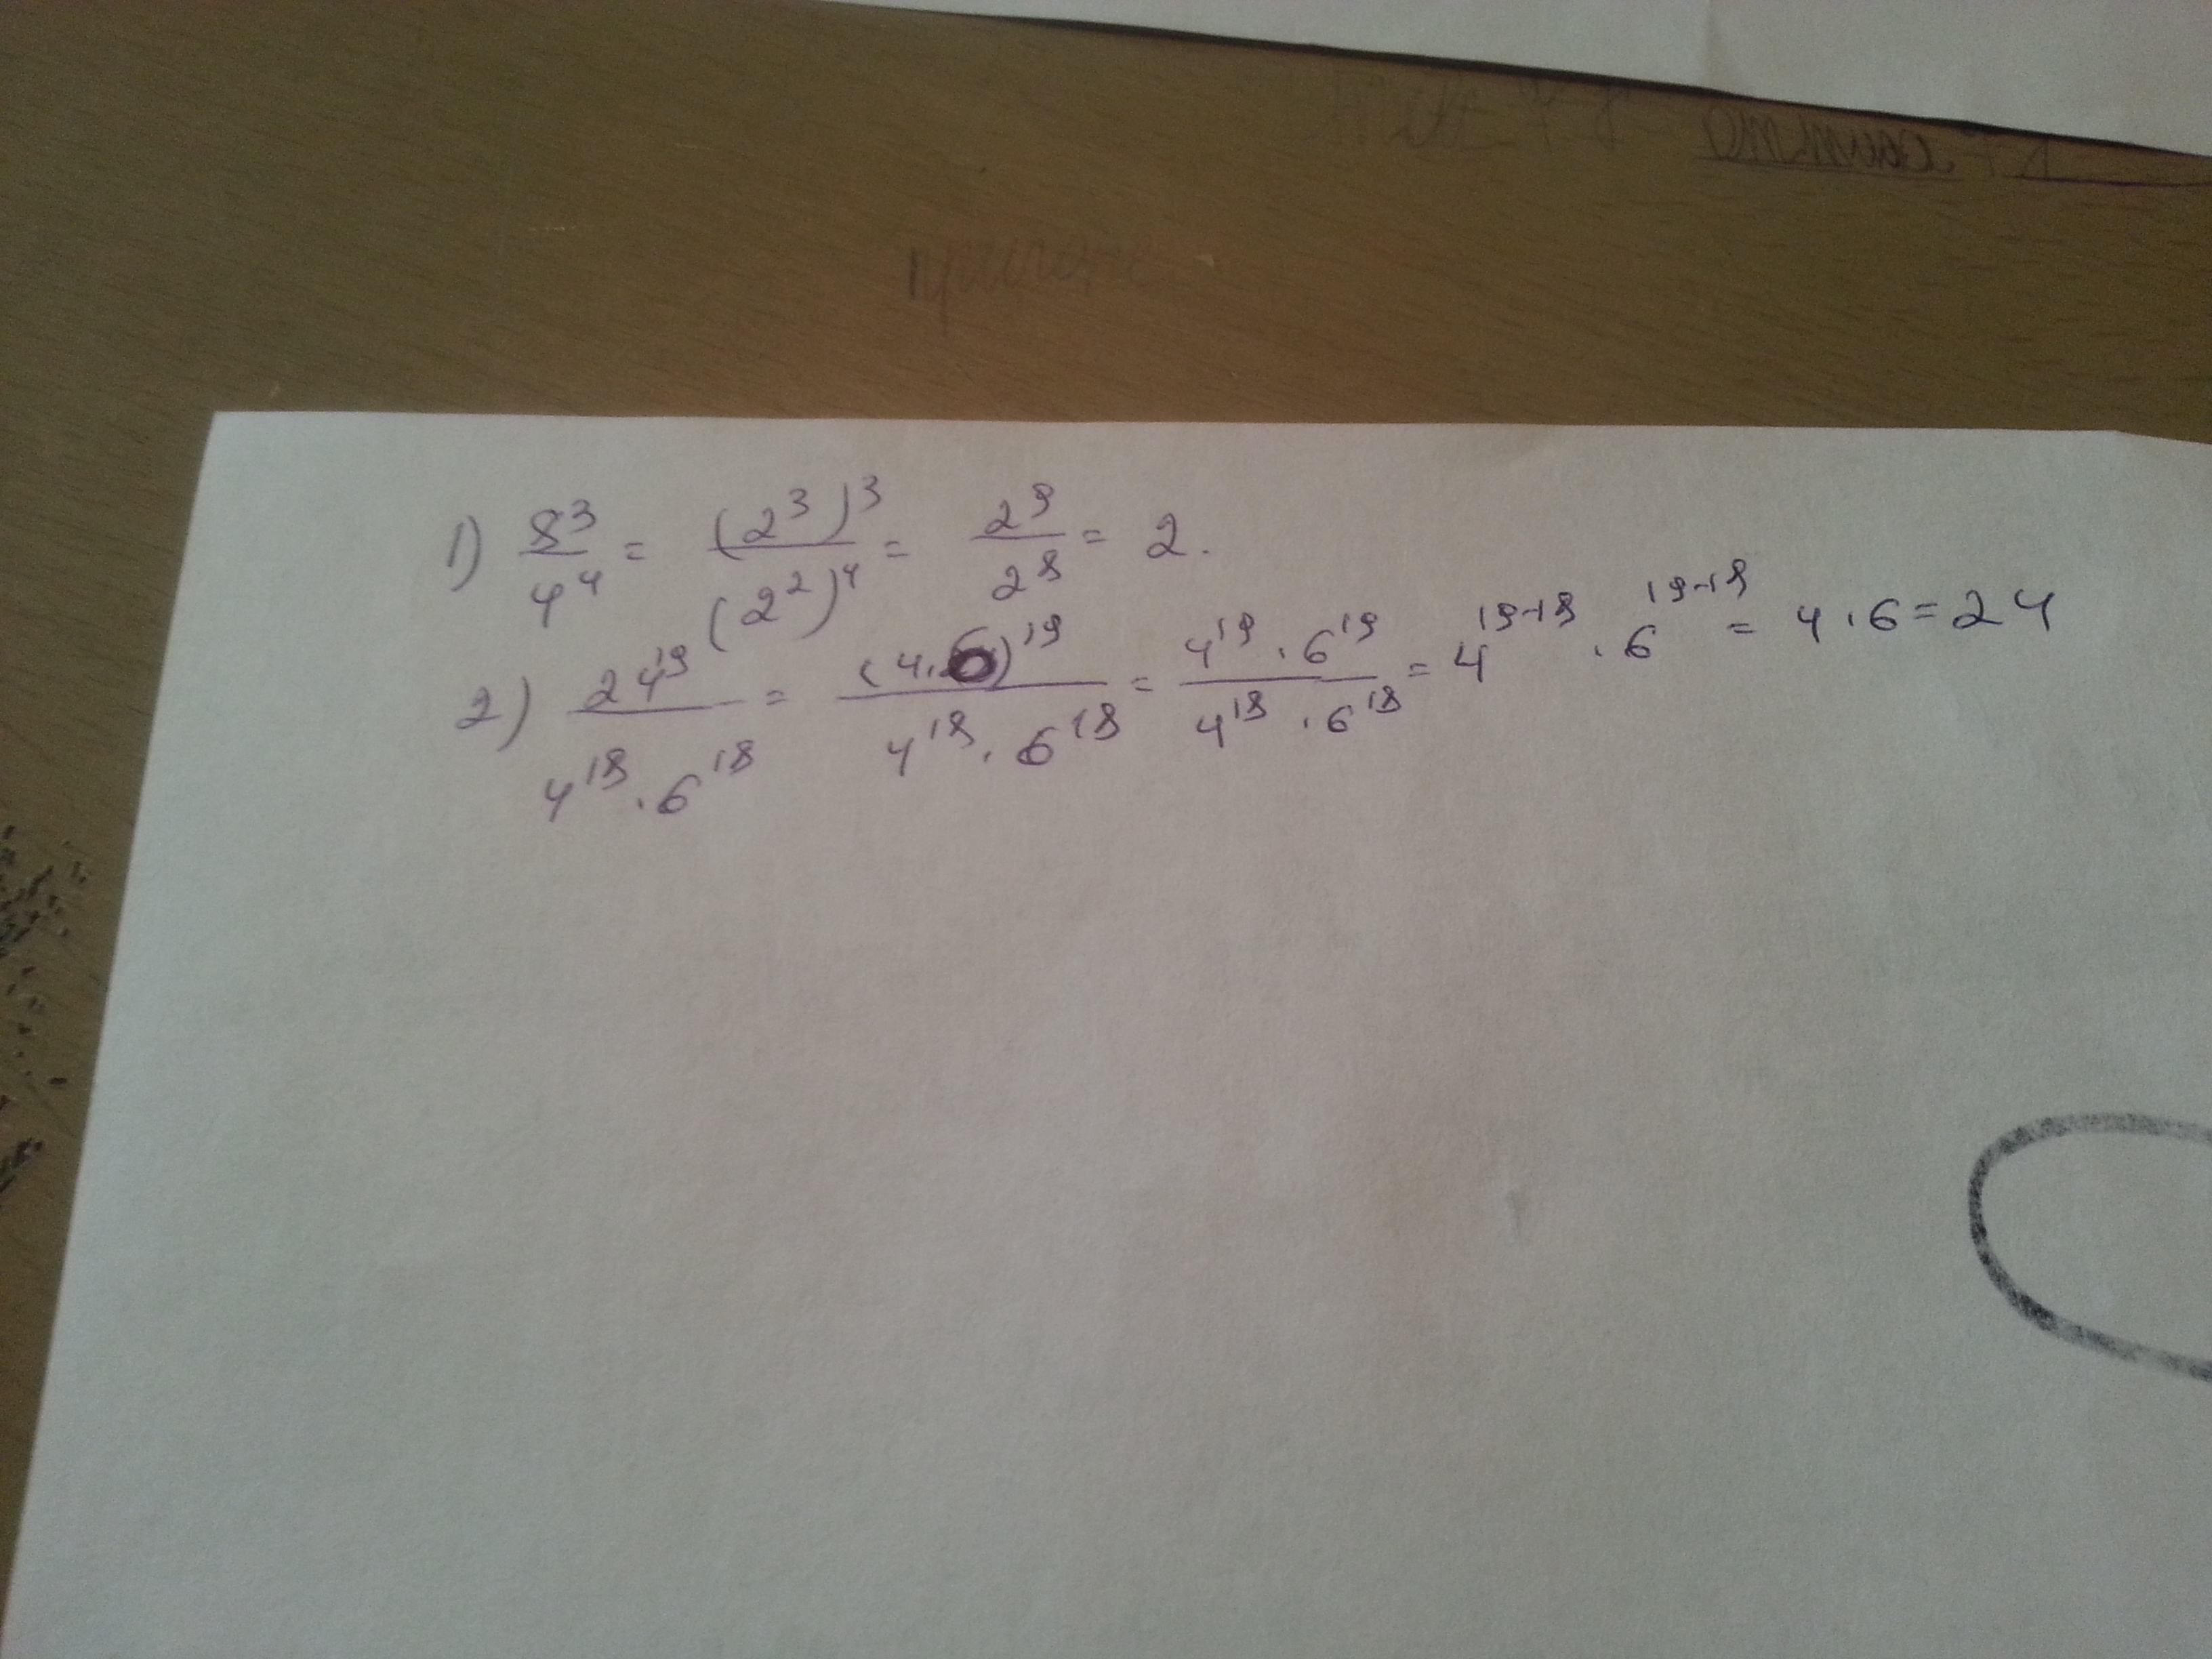 1) 8³/4⁴ = (2³)³/(2²)⁴ = 2⁹/2⁸ = 2.
2) 24¹⁹/4¹⁸·6¹⁸ = (4·6)¹⁹/4¹⁸·6¹⁸ = 4¹⁹·6¹⁹/4¹⁸·6¹⁸ = 4¹⁹⁻¹⁸·6¹⁹⁻¹⁸ = 4·6=24